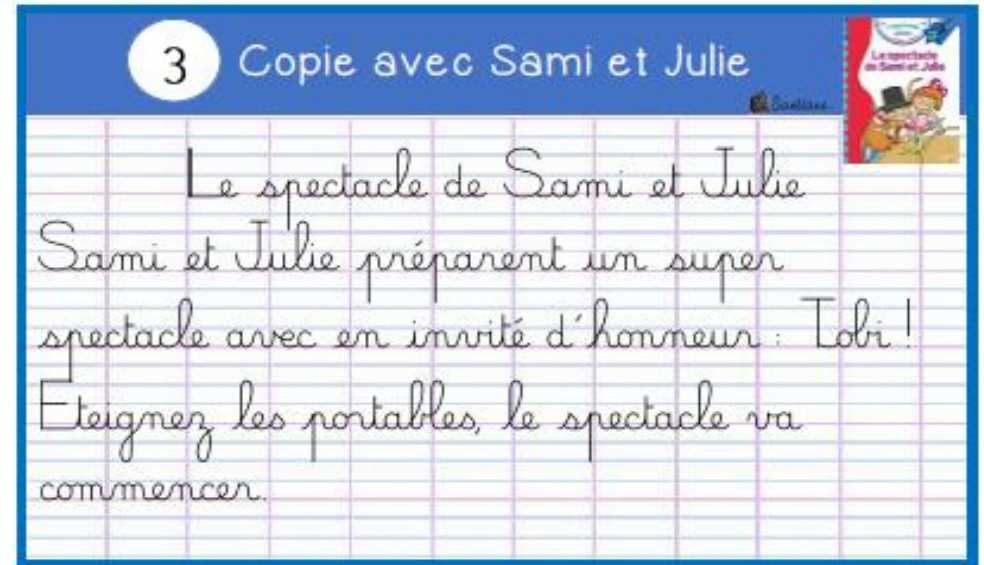 3 Copie avec Sami et Julie
Le spectacle
de Sami et Julie
Le spectacle de Sami et Julie
Sami et Julie préparent un super
spectacle avec en invité d'honneur : Tobi !
Eteignez les portables, le spectacle va
commencer.